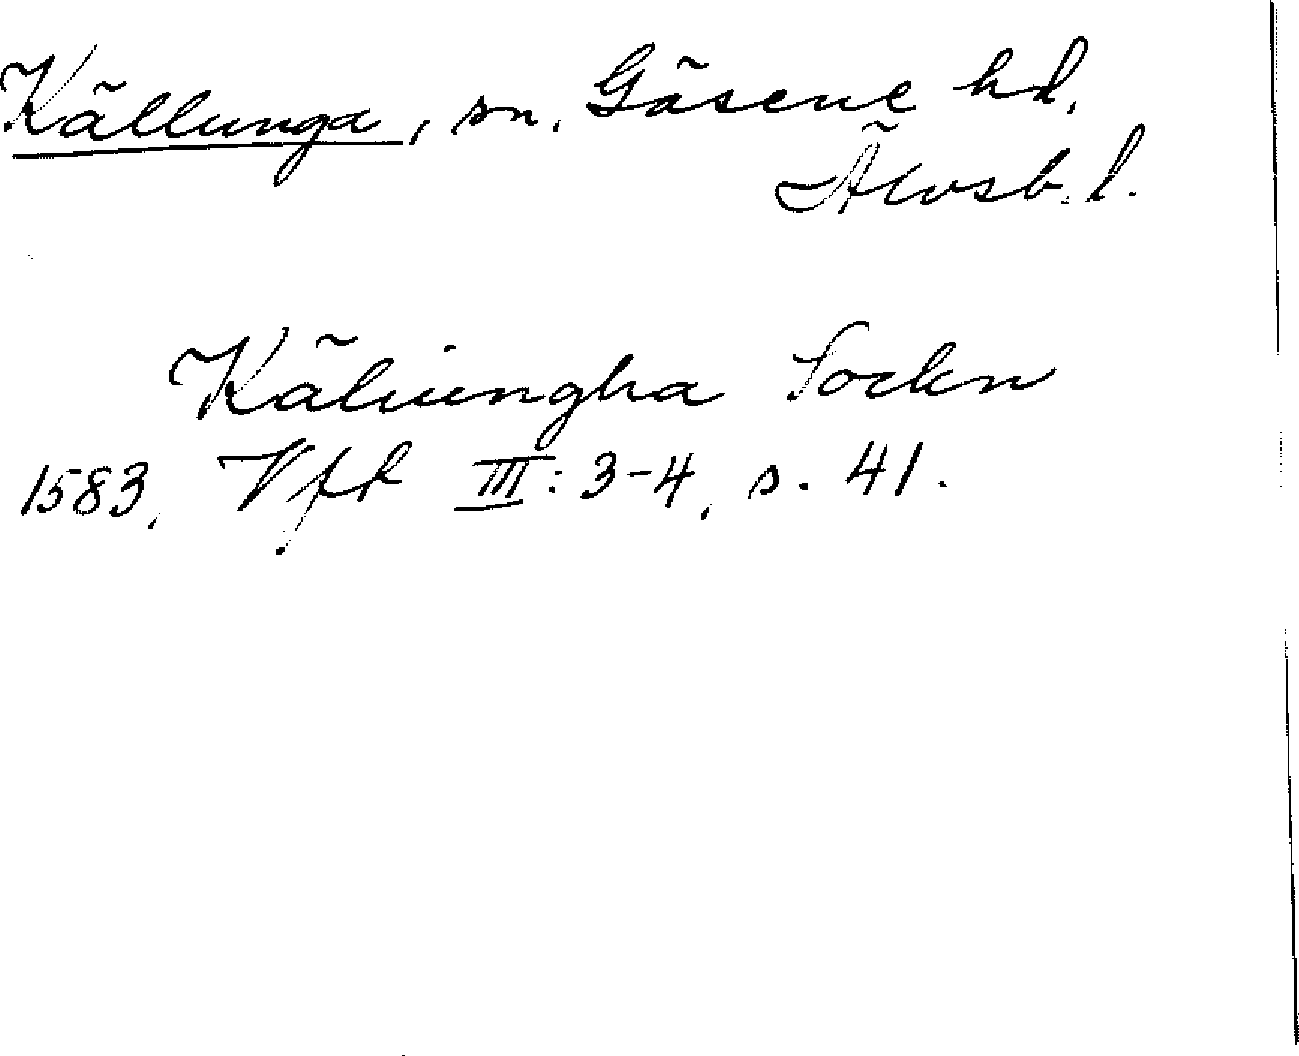 Källunga, sn. Gäsene hd.
Älvsb. l.
Käliungha Sockn
1583, Vfk III: 3-4, s. 41.